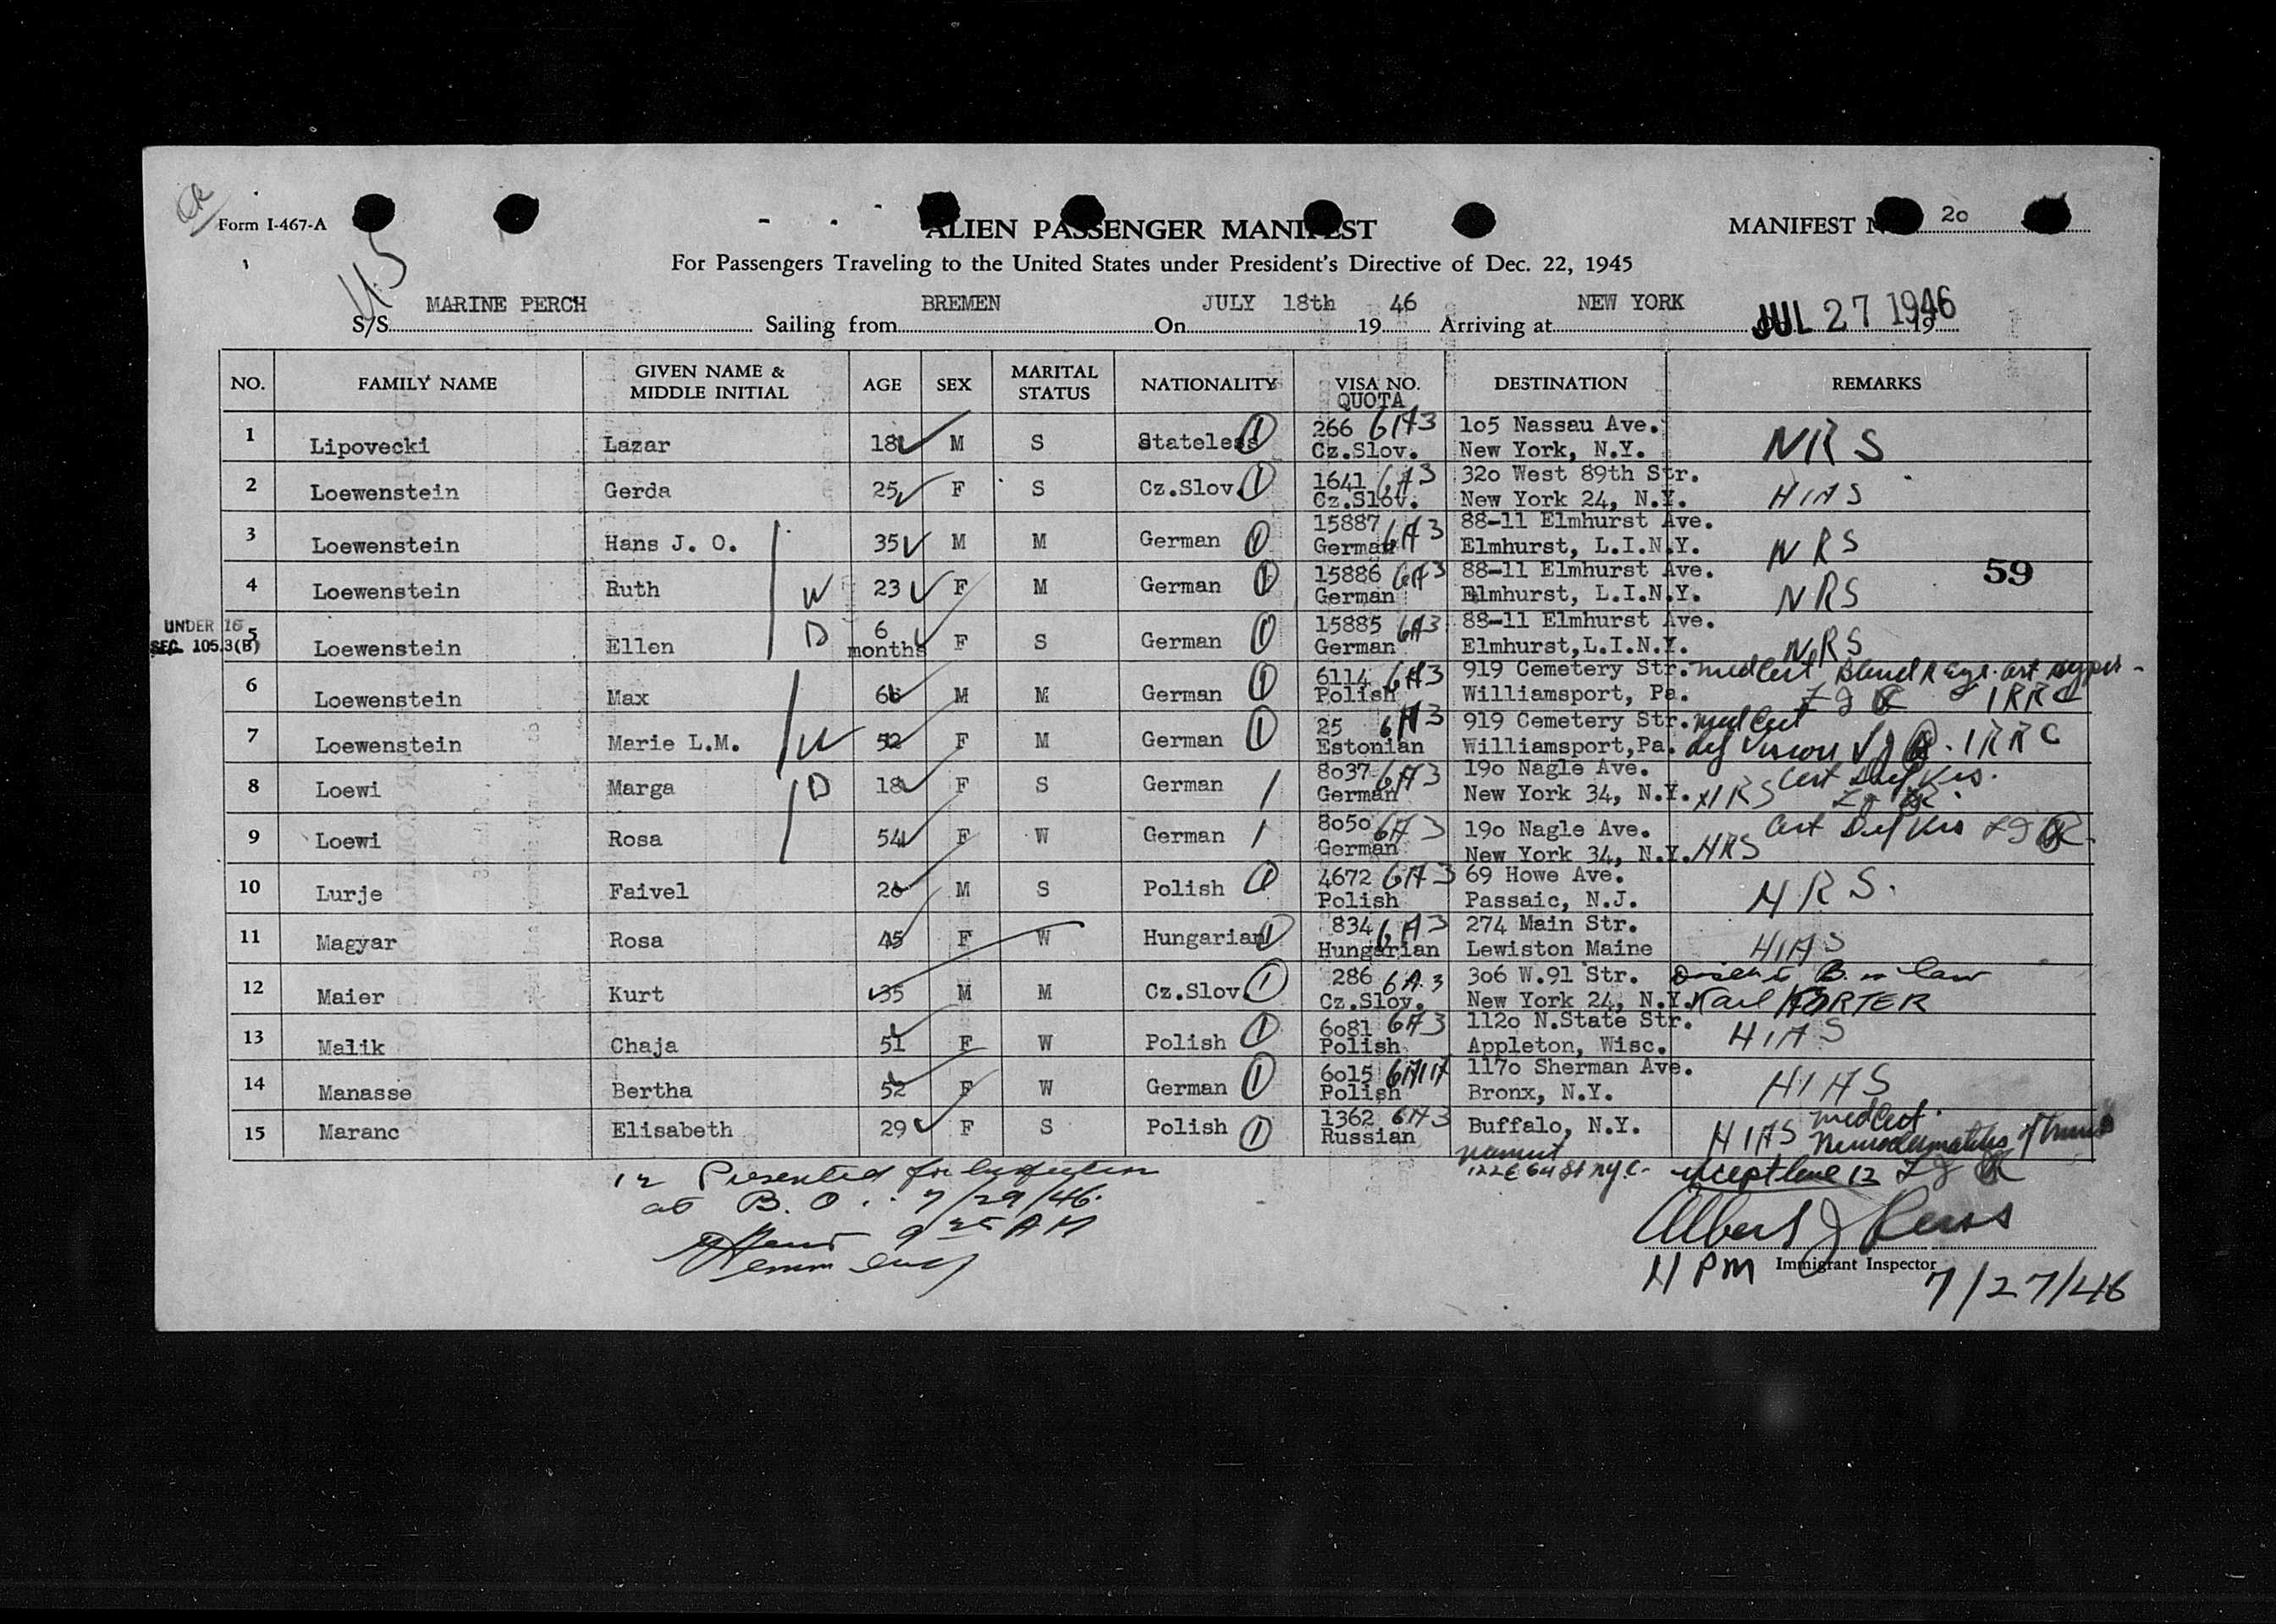 Form I-467-A
ALIEN PASSENGER MANIFEST
MANIFEST N 20
For Passengers Traveling to the United States under President's Directive of Dec. 22, 1945
S/S MARINE PERCH Sailing from BREMEN On JULY 18th 19 46 Arriving at NEW YORK JUL 27 1946 19
NO. FAMILY NAME GIVEN NAME & MIDDLE INITIAL AGE SEX MARITAL STATUS NATIONALITY VISA NO. QUOTA DESTINATION REMARKS
1 Lipovecki Lazar 18 M S Stateless 1 266 6A3 Cz.Slov. 105 Nassau Ave. New York, N.Y. NRS
2 Loewenstein Gerda 25 F S Cz.Slov. 1 1641 6A3 Cz.Slov. 320 West 89th Str. New York 24, N.Y. HIAS
3 Loewenstein Hans J. O. 35 M M German 1 15887 6A3 German 88-11 Elmhurst Ave. Elmhurst, L.I.N.Y. NRS
4 Loewenstein Ruth W 23 F M German 1 15886 6A3 German 88-11 Elmhurst Ave. Elmhurst, L.I.N.Y. NRS
59
UNDER 16 SEC. 105.3(B)
5 Loewenstein Ellen D 6 months F S German 1 15885 6A3 German 88-11 Elmhurst Ave. Elmhurst,L.I.N.Y. NRS
6 Loewenstein Max M M German 1 6114 6A3 Polish 919 Cemetery Str. Williamsport, Pa. med Cert Blind R Eye IRRC
7 Loewenstein Marie L.M. W 52 F M German 1 25 6A3 Estonian 919 Cemetery Str. Williamsport,Pa. med Cert def Vision IRRC
8 Loewi Marga D 18 F S German 1 8037 6A3 German 190 Nagle Ave. New York 34, N.Y. NRS Cert Def Vis.
9 Loewi Rosa 54 F W German 1 8050 6A3 German 190 Nagle Ave. New York 34, N.Y. NRS Cert Def Vis
10 Lurje Faivel M S Polish 1 4672 6A3 Polish 69 Howe Ave. Passaic, N.J. NRS.
11 Magyar Rosa 45 F W Hungarian 1 834 6A3 Hungarian 274 Main Str. Lewiston Maine HIAS
12 Maier Kurt 35 M M Cz.Slov. 1 286 6A.3 Cz.Slov. 306 W.91 Str. New York 24, N.Y. B. in law Karl
13 Malik Chaja 51 F W Polish 1 6081 6A3 Polish 1120 N.State Str. Appleton, Wisc. HIAS
14 Manasse Bertha 52 F W German 1 6015 Polish 1170 Sherman Ave. Bronx, N.Y. HIAS
15 Maranc Elisabeth 29 F S Polish 1 1362 6A3 Russian Buffalo, N.Y. HIAS med Cert
12 Presented for Inspection
at B.O. 7/29/46.
9 25 AM
except line 12
Albert J Reiss
Immigrant Inspector
11 PM 7/27/46